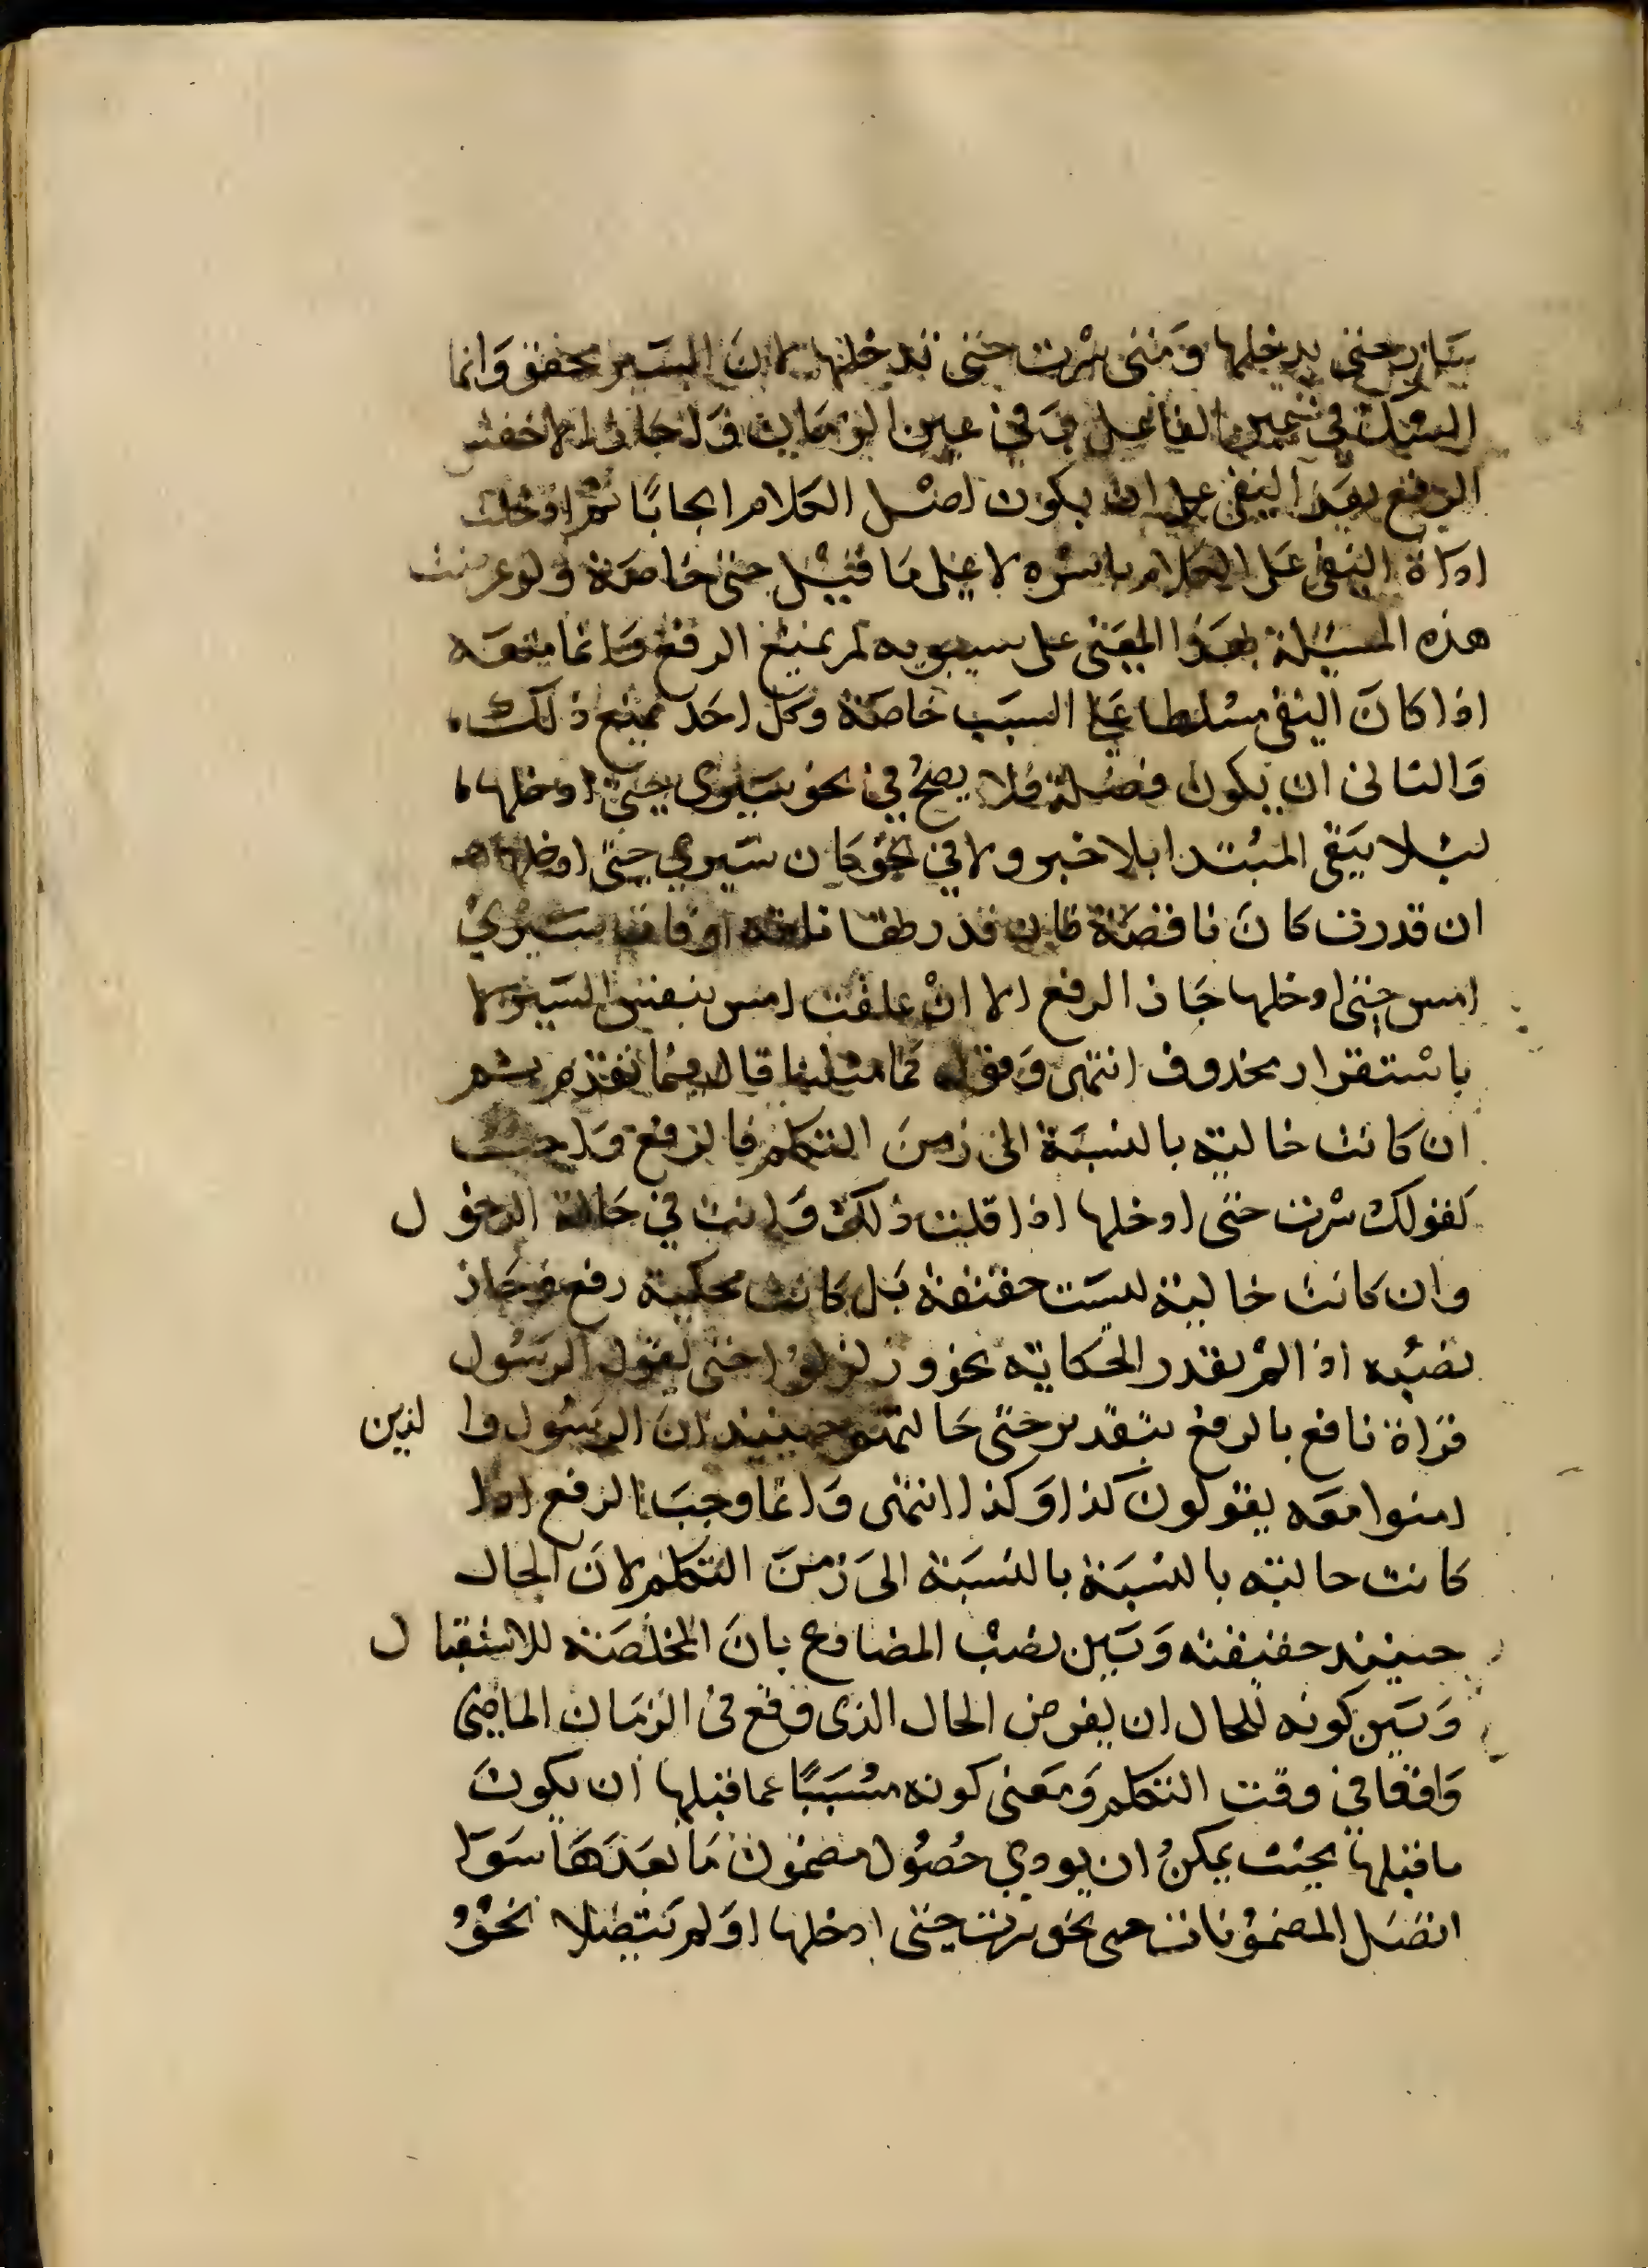 سار حتى يدخلها ومتى سرت حتى تدخلها لان السير محقق وانما
الشك في عين الفاعل وفي عين الزمان واجاز الاخفش
الرفع بعد النفي على ان يكون اصل الكلام ايجابا ثم ادخلت
اداة النفي على الكلام باسره لا على ما قبل حتى خاصة ولو عرضت
هذه المسئلة بهذا المعنى على سيبويه لم يمنع الرفع وانما منعه
اذا كان النفي مسلطا على السبب خاصة وكل احد يمنع ذلك،
والثاني ان يكون فضلة فلا يصح في نحو سيري حتى ادخلها،
ليلا يبقى المبتدا بلا خبر ولا في نحو كان سيري حتى ادخلها
ان قدرت كان ناقصة فان قدرطها تامة او قلت سيري
امس حتى ادخلها جاز الرفع الا ان علقت امس بنفس السير لا
باستقرار محذوف انتهى وقوله كما مثلنا قال فيما تقدم ثم
ان كانت حالية بالنسبة الى زمن التكلم فالرفع واجب
كقولك سرت حتى ادخلها اذا قلت ذلك وانت في حالة الدخول
وان كانت حالية ليست حقيقة بل كانت محكية رفع وجاز
نصبه اذا لم تقدر الحكاية نحو وزلزلوا حتى يقول الرسول
قراة نافع بالرفع بتقدير حتى حالتهم حينيذ ان الرسول والذين
امنوا معه يقولون كذا وكذا انتهى وانما وجب الرفع اذا
كانت حالية بالنسبة بالنسبة الى زمن التكلم لان الحال
حينيذ حقيقة وبين نصب المضارع بان المخلصة للاستقبال
وبين كونه للحال ان يفرض الحال الذى وقع في الزمان الماضي
واقعا في وقت التكلم ومعنى كونه مسببا عما قبلها ان يكون
ما قبلها بحيث يمكن ان يودي حصول مضمون ما بعدها سوا
اتصل المضمونان نحو سرت حتى ادخلها او لم يتصلا نحو